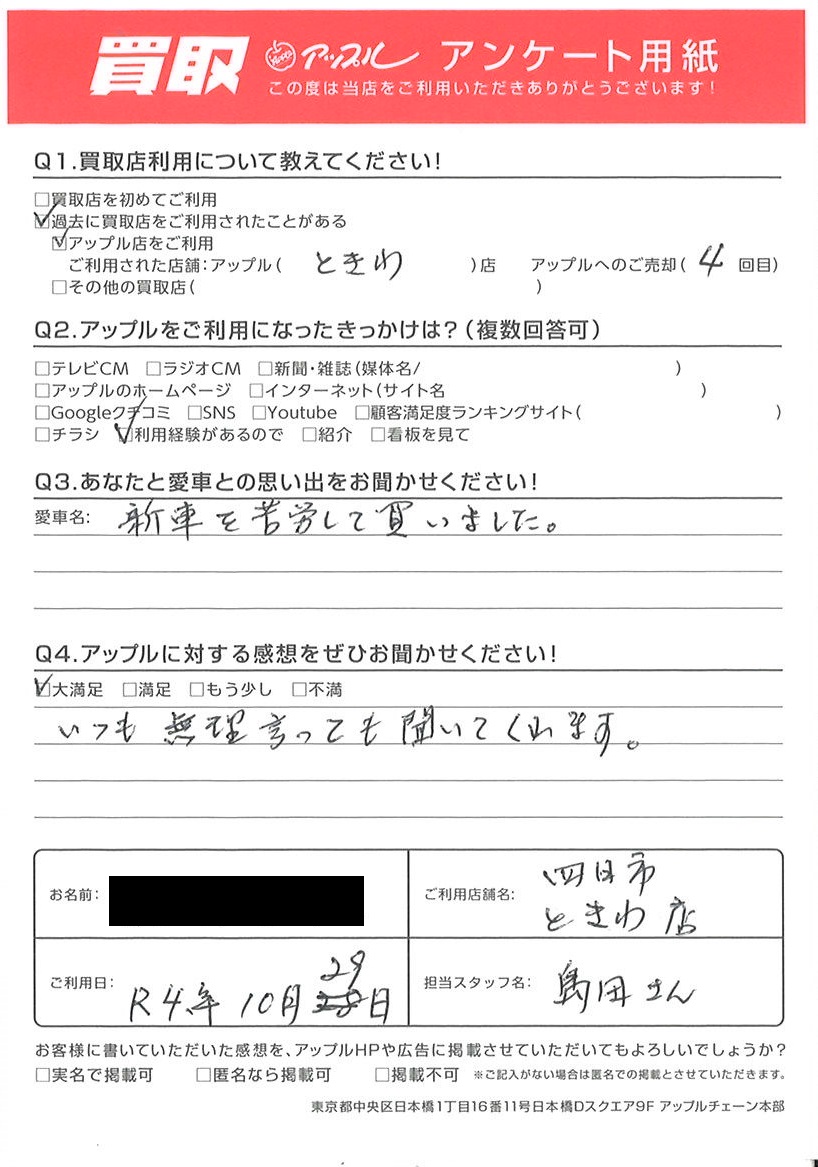 買取 アップル アンケート用紙
この度は当店をご利用いただきありがとうございます!
Q1.買取店利用について教えてください!
□買取店を初めてご利用
☑過去に買取店をご利用されたことがある
☑アップル店をご利用
ご利用された店舗:アップル( ときわ )店 アップルへのご売却( 4 回目)
□その他の買取店( )
Q2.アップルをご利用になったきっかけは?(複数回答可)
□テレビCM □ラジオCM □新聞・雑誌(媒体名/ )
□アップルのホームページ □インターネット(サイト名 )
□Googleクチコミ □SNS □Youtube □顧客満足度ランキングサイト( )
□チラシ ☑利用経験があるので □紹介 □看板を見て
Q3.あなたと愛車との思い出をお聞かせください!
愛車名: 新車を苦労して買いました。
Q4.アップルに対する感想をぜひお聞かせください!
☑大満足 □満足 □もう少し □不満
いつも無理言っても聞いてくれます。
お名前:
ご利用店舗名: 四日市
ときわ店
ご利用日: R4年10月28日
29
担当スタッフ名: 島田さん
お客様に書いていただいた感想を、アップルHPや広告に掲載させていただいてもよろしいでしょうか?
□実名で掲載可 □匿名なら掲載可 □掲載不可 ※ご記入がない場合は匿名での掲載とさせていただきます。
東京都中央区日本橋1丁目16番11号日本橋Dスクエア9F アップルチェーン本部